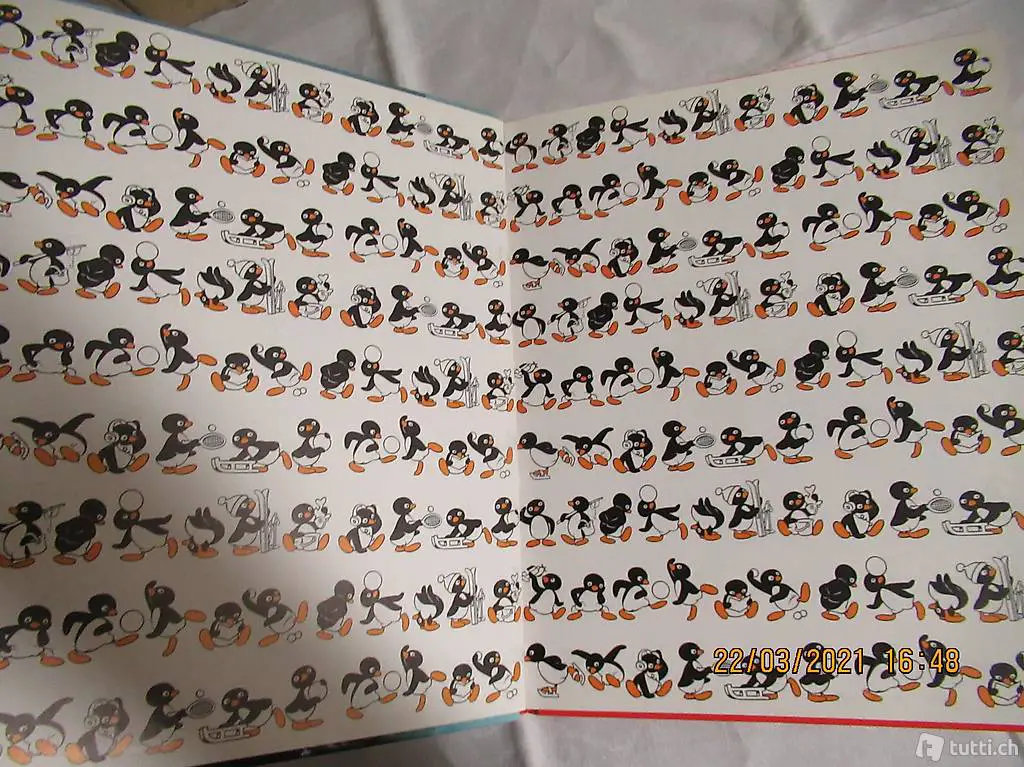 22/03/2021 16:48
tutti.ch